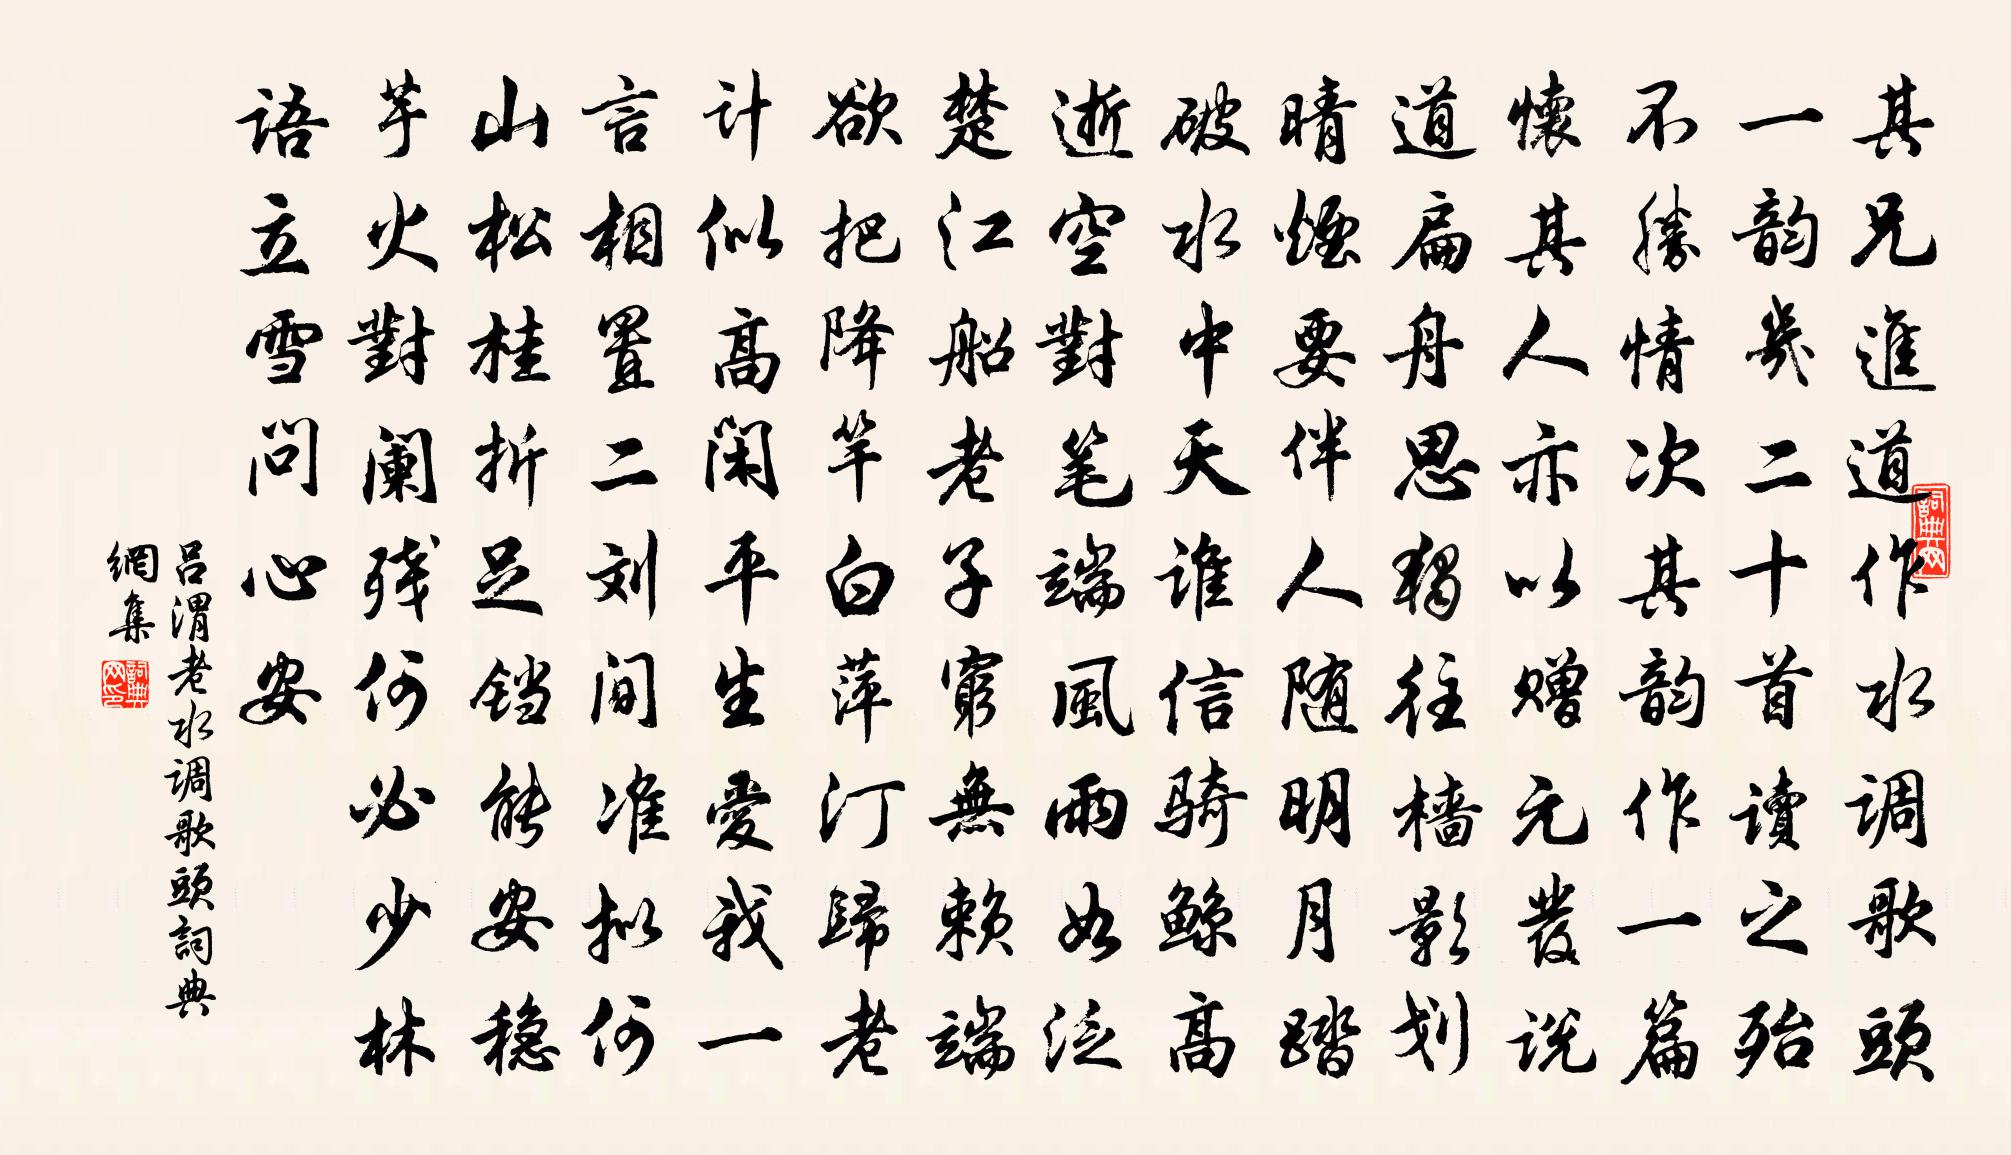 其兄進道作水调歌頭
一韵幾二十首讀之殆
不勝情次其韵作一篇
懷其人亦以赠元發说
道扁舟思獨往樯影划
晴煙要伴人随明月踏
破水中天谁信骑鲸高
逝空對笔端風雨如泛
楚江船老子窮無赖端
欲把降竿白萍汀歸老
计似高闲平生愛我一
言相置二刘间准拟何
山松桂折足铛能安稳
芋火對阑残何必少林
语立雪问心安
吕渭老水调歌頭詞典
網集
詞典网
詞典网印